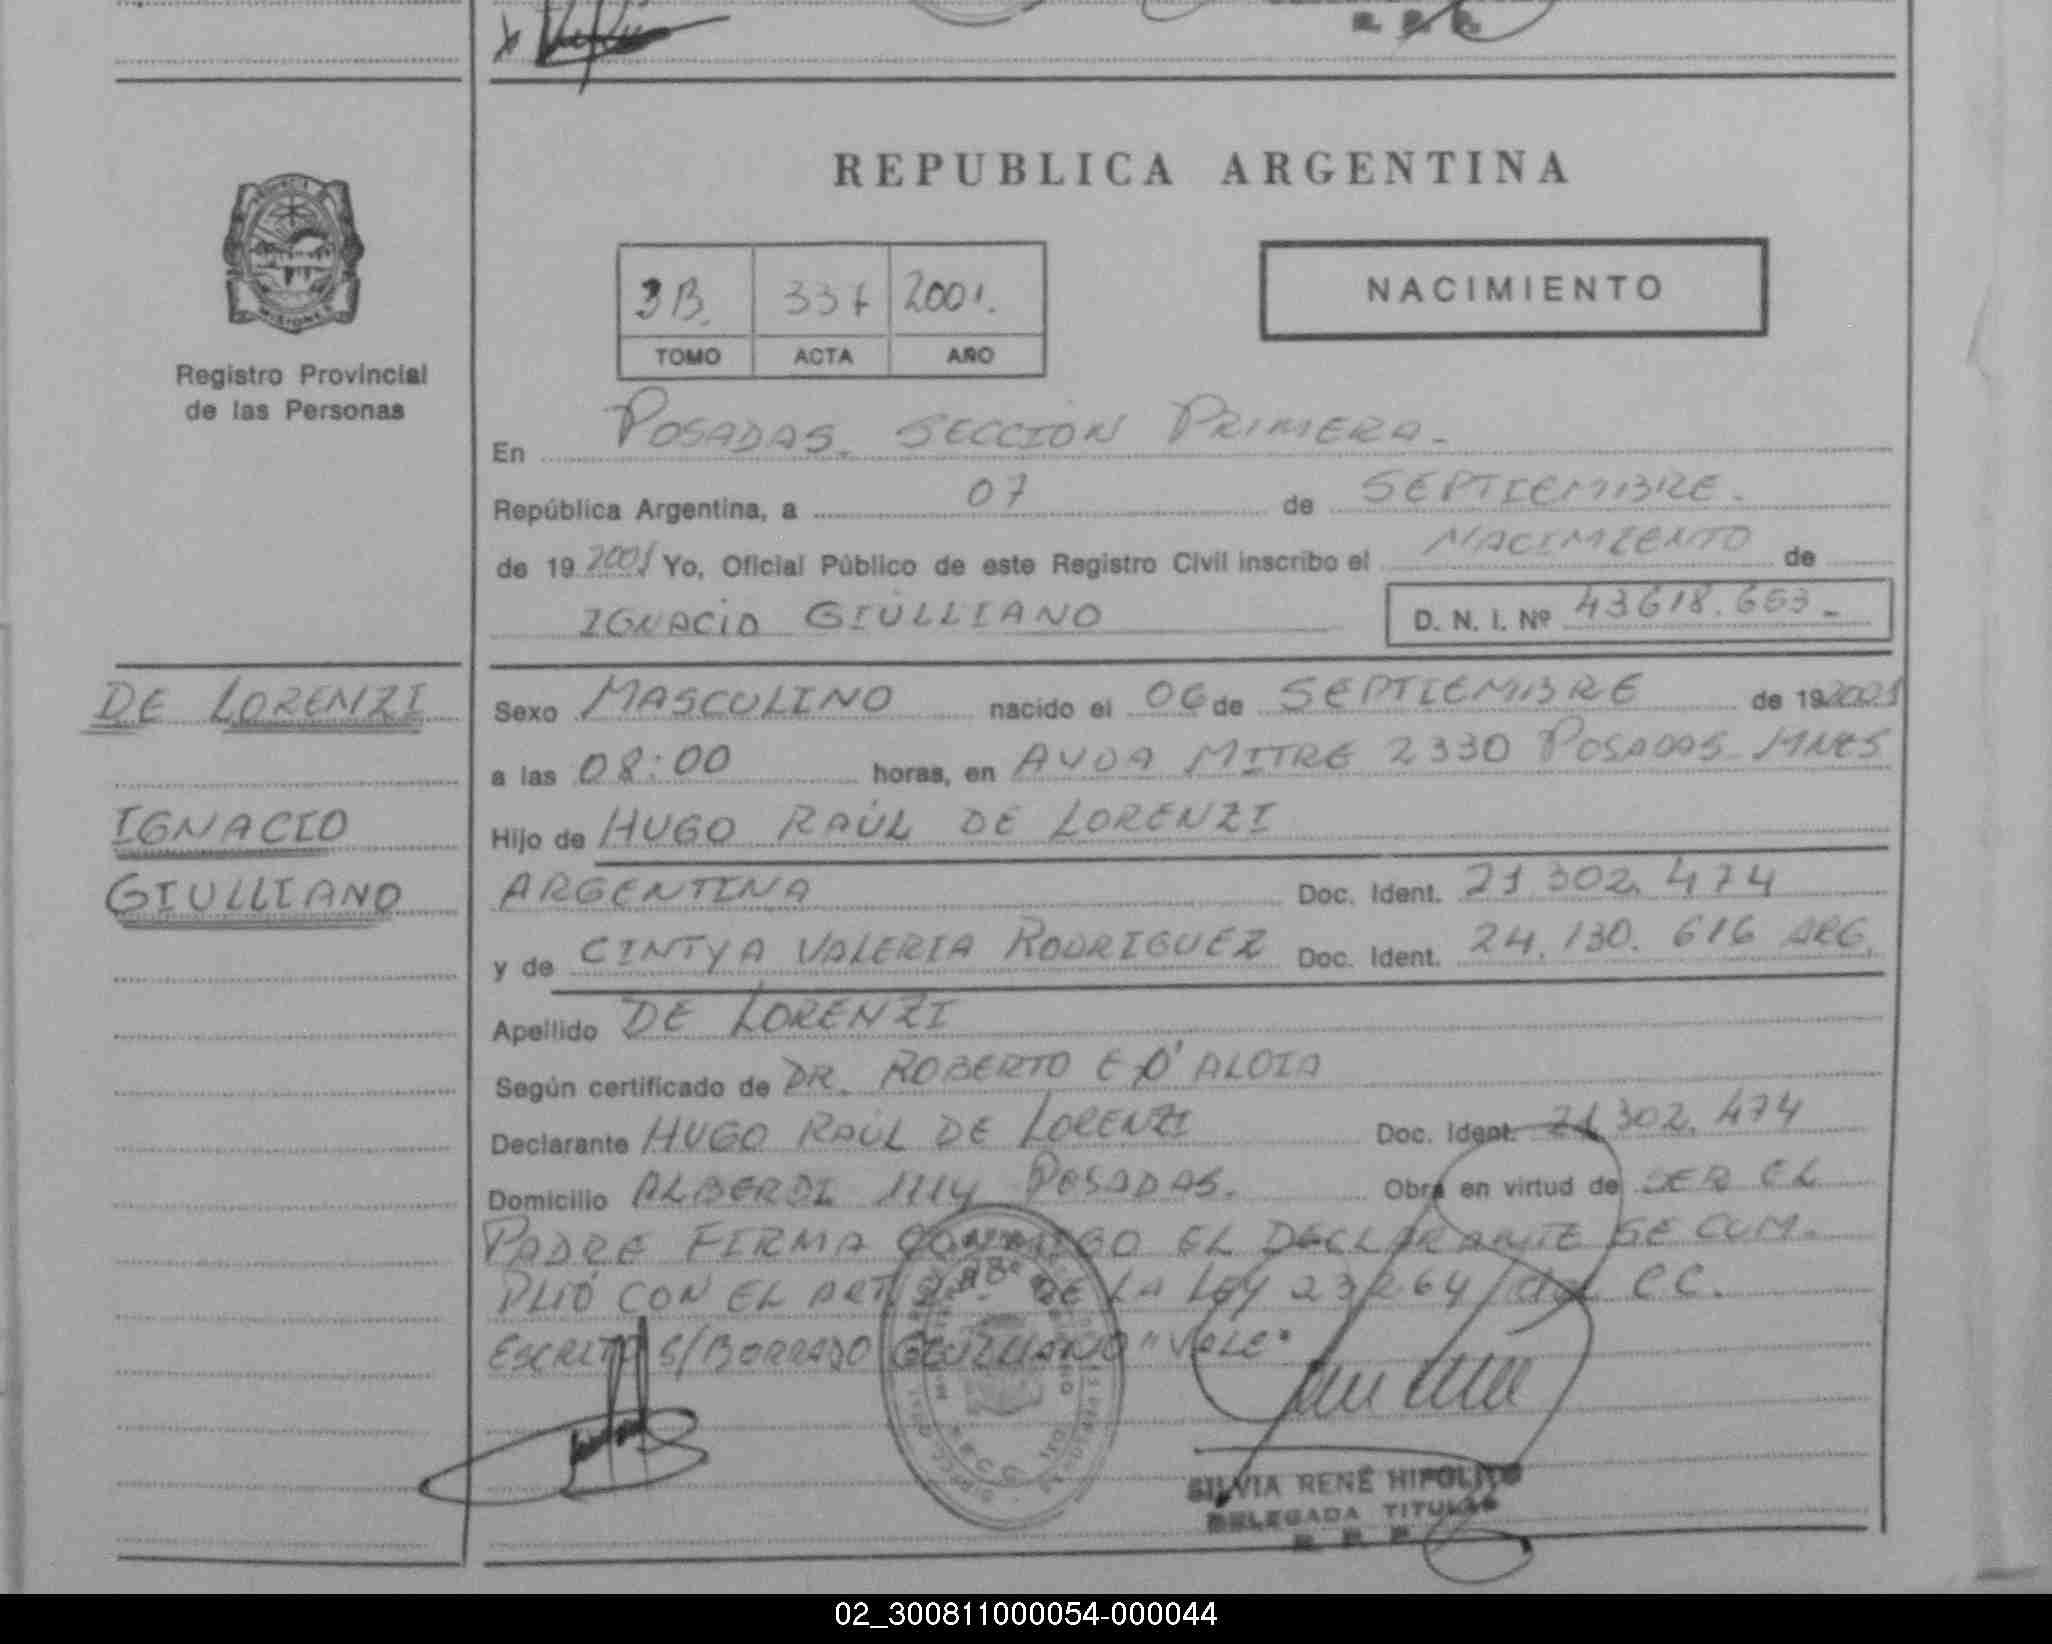 R. P. P.
REPUBLICA ARGENTINA
MISIONES
3B. 337 2001.
TOMO ACTA AÑO
NACIMIENTO
Registro Provincial
de las Personas
En POSADAS. SECCION PRIMERA.
República Argentina, a 07 de SEPTIEMBRE.
de 19 2001 Yo, Oficial Público de este Registro Civil inscribo el NACIMIENTO de
IGNACIO GIULLIANO D. N. I. Nº 43618.653.-
DE LORENZI
IGNACIO
GIULLIANO
Sexo MASCULINO nacido el 06 de SEPTIEMBRE de 19 2001
a las 08:00 horas, en AVDA MITRE 2330 POSADAS MNES
Hijo de HUGO RAÚL DE LORENZI
ARGENTINA Doc. Ident. 21.302.474
y de CINTYA VALERIA RODRIGUEZ Doc. Ident. 24.130.616 ARG.
Apellido DE LORENZI
Según certificado de DR. ROBERTO E D'ALOIA
Declarante HUGO RAÚL DE LORENZI Doc. Ident. 21.302.474
Domicilio ALBERDI 1114 POSADAS. Obra en virtud de SER EL
PADRE FIRMA CONMIGO EL DECLARANTE SE CUM.
PLIÓ CON EL ART. DE LA LEY 23264 / del C.C.
ESCRITO S/BORRADO GIULLIANO "VALE"
SILVIA RENÉ HIPOLITO
DELEGADA TITULAR
R. P. P.
02_300811000054-000044